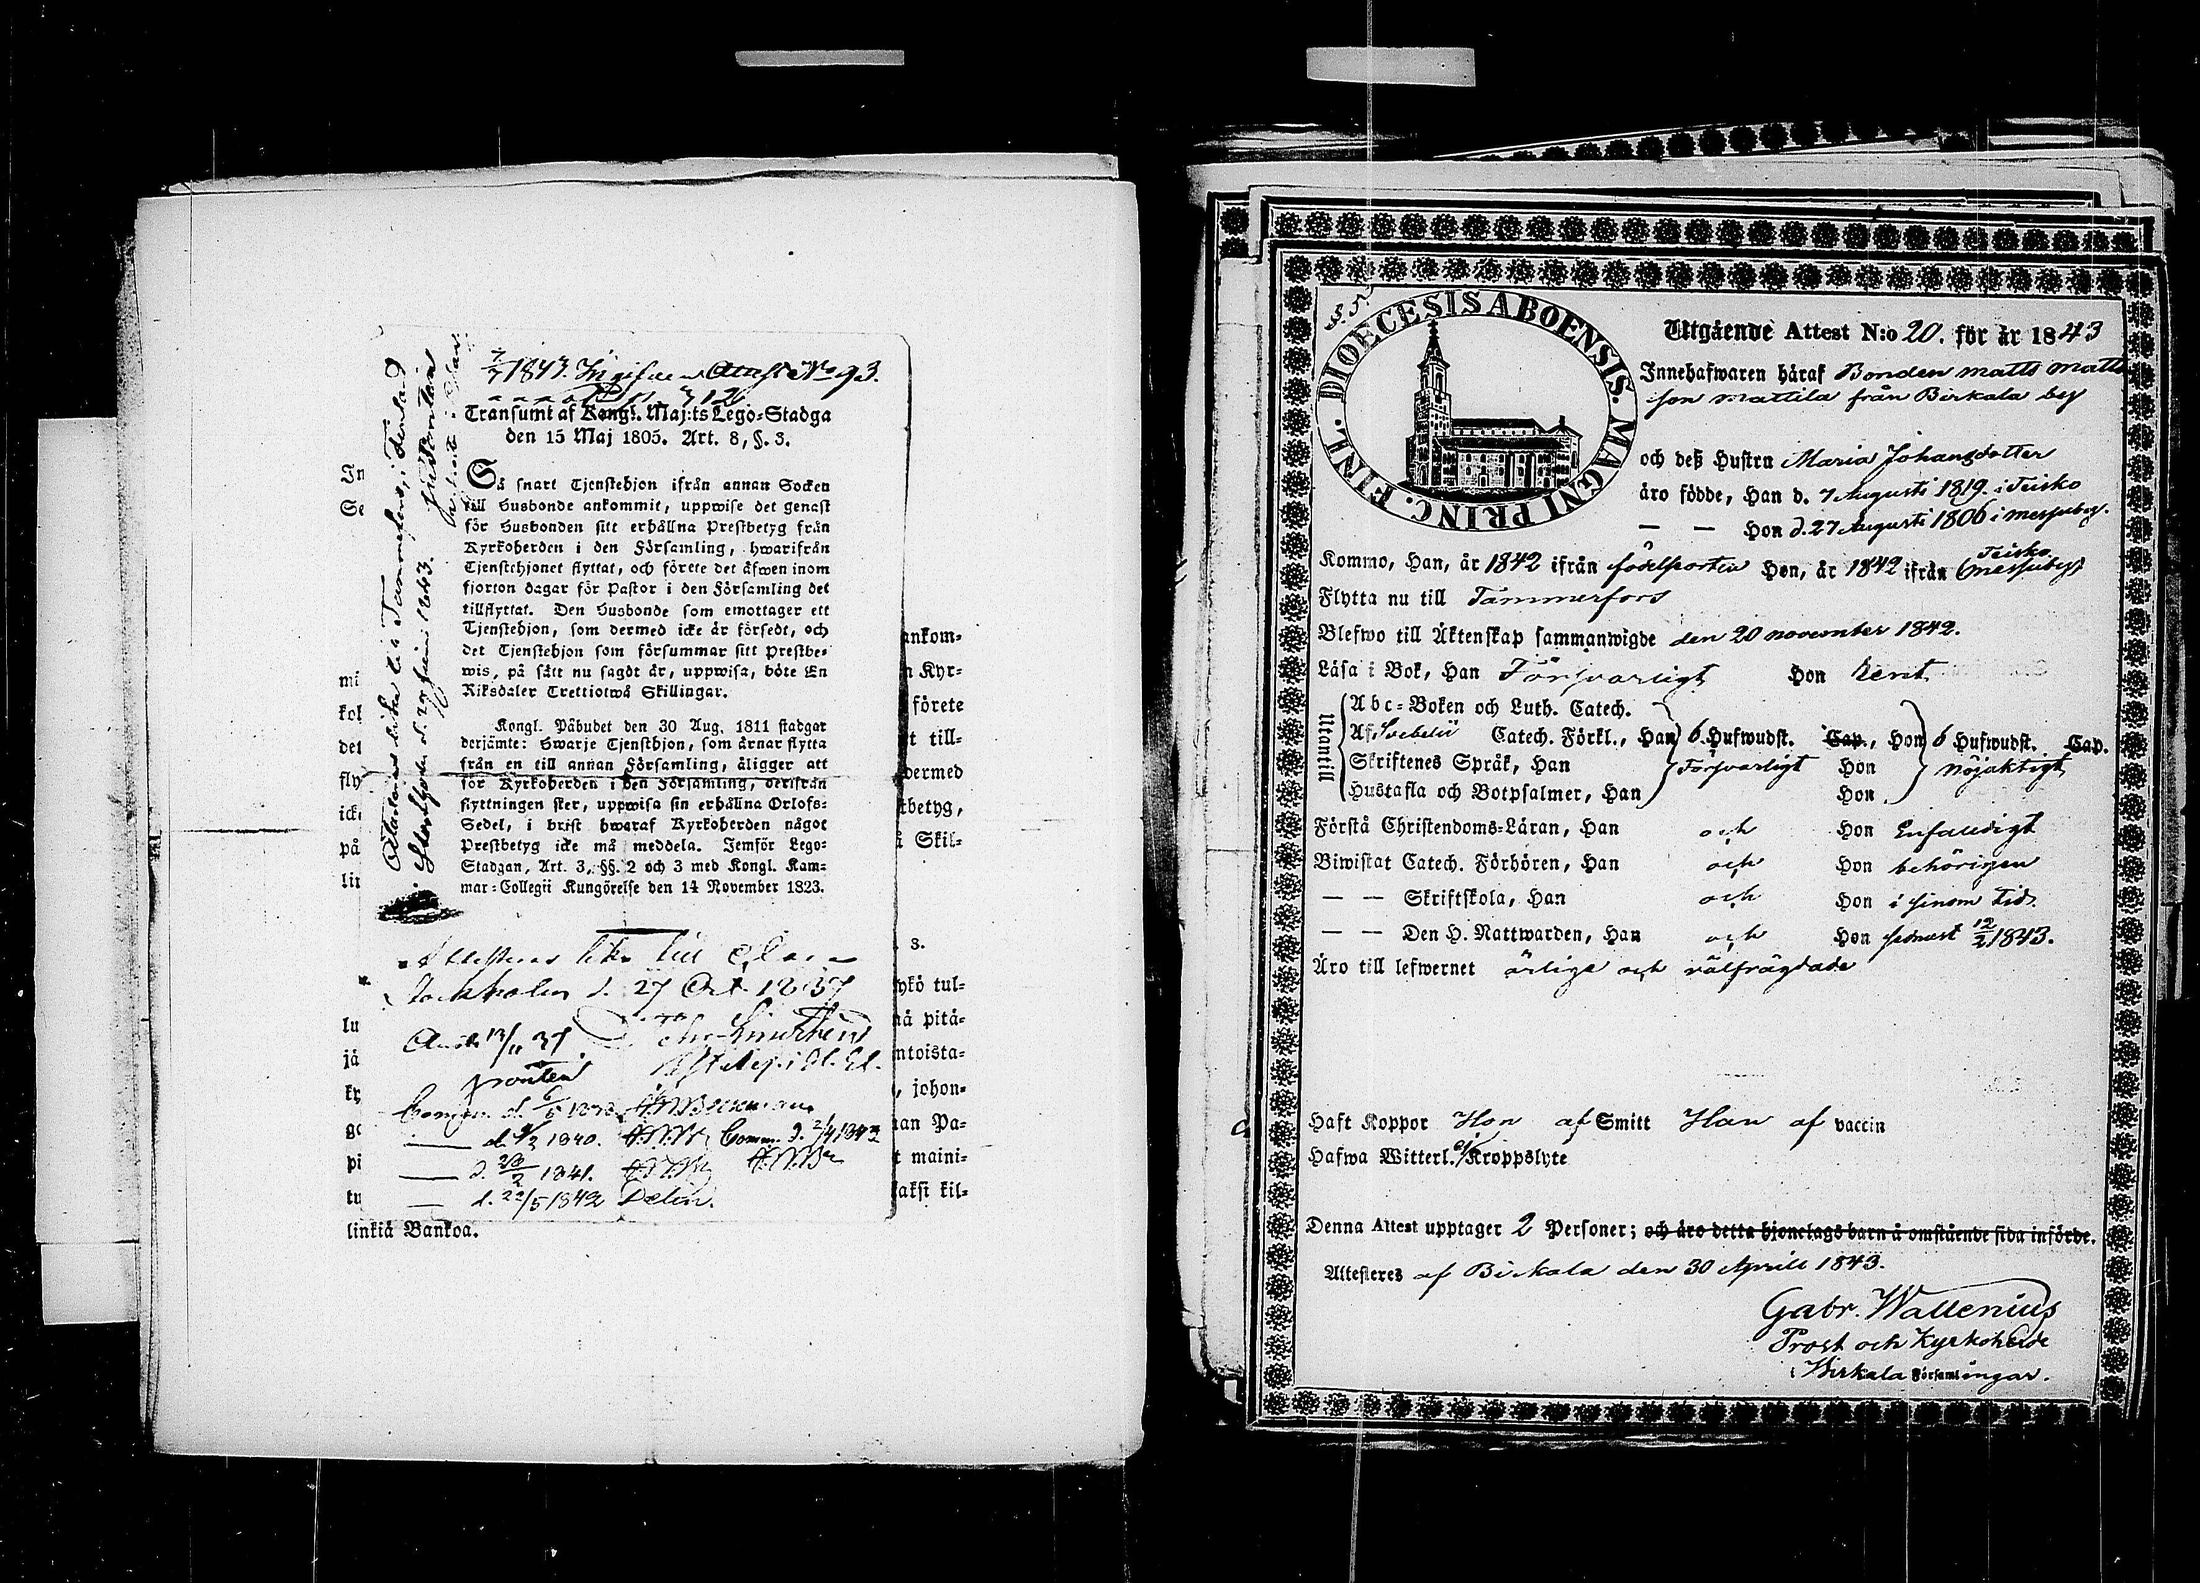 1843. Attest No 93.
Transumt af Kongl. Maj:ts Lego-Stadga
den 15 Maj 1805. Art. 8, §. 3.
Så snart Tjenstehjon ifrån annan Socken
till Husbonde ankommit, uppwise det genast
för Husbonden sitt erhållna Prestbetyg från
Kyrkoherden i den Församling, hwarifrån
Tjenstehjonet flyttat, och förete det äfwen inom
fjorton dagar för Pastor i den Församling det
tillflyttat. Den Husbonde som emottager ett
Tjenstehjon, som dermed icke är försedt, och
det Tjenstehjon som försummar sitt Prestbe-
wis, på sätt nu sagdt är, uppwisa, böte En
Riksdaler Trettiotwå Skillingar.
Kongl. Påbudet den 30 Aug. 1811 stadgar
derjämte: Hwarje Tjenstehjon, som ärnar flytta
från en till annan Församling, åligger att
för Kyrkoherden i den Församling, derifrån
flyttningen sker, uppwisa sin erhållna Orlofs-
Sedel, i brist hwaraf Kyrkoherden något
Prestbetyg icke må meddela. Jemför Lego-
Stadgan, Art. 3, §§. 2 och 3 med Kongl. Kam-
mar-Collegii Kungörelse den 14 November 1823.
till Tammerfors, i Finland
Stockholm d. 1843.
Stockholm d. 27 Oct. 1837
d. 1840. Comm. d. 2/4 1843
d. 1841.
d. 22/5 1842
In
Se
mi
kol
det
fly
icke
på
lin
lu
jä
ky
ge
pi
tu
ankom-
n Kyr-
förete
t till-
dermed
tbetyg,
å Skil-
. 3.
ykö tul-
nä pitä-
ntoista-
, johon-
nan Pa-
t maini-
aksi kil-
linkiä Bankoa.
§. 5
DIOECESIS ABOENSIS. MAGNI PRINC. FINL.
Utgående Attest N:o 20. för år 1843
Innehafwaren häraf Bonden Matts Matts
son Mattila från Birkala by
och deß Hustru Maria Johansdotter
äro födde, Han d. 7 Augusti 1819. i Teisko
— — Hon d. 27 Augusti 1806 i Messuby.
Kommo, Han, år 1842 ifrån födelseorten Hon, år 1842 ifrån Teisko (Messuby)
Flytta nu till Tammerfors
Blefwo till Äktenskap sammanwigde den 20 november 1842.
Läsa i Bok, Han Försvarligt Hon Rent
Utantill
Abc-Boken och Luth. Catech.
Af Svebelii Catech. Förkl., Han 6 Hufwudst. Cap., Hon 6 Hufwudst. Cap.
Skriftenes Språk, Han Försvarligt Hon nöjaktigt
Hustafla och Botpsalmer, Han Hon
Förstå Christendoms-Läran, Han och Hon Enfaldigt
Biwistat Catech. Förhören, Han och Hon behörigen
— — Skriftskola, Han och Hon i sinom tid.
— — Den H. Nattwarden, Han och Hon senast 12/2 1843.
Äro till lefwernet ärliga och välfrägdade
Haft Koppor Hon af Smitt Han af vaccin
Hafwa Witterl. ej Kroppslyte
Denna Attest upptager 2 Personer; och äro detta hjonelags barn å omstående sida införde.
Attesteres af Birkala den 30 Aprill 1843.
Gabr. Wallenius
Prost och Kyrkoherde
i Birkala Församlingar.